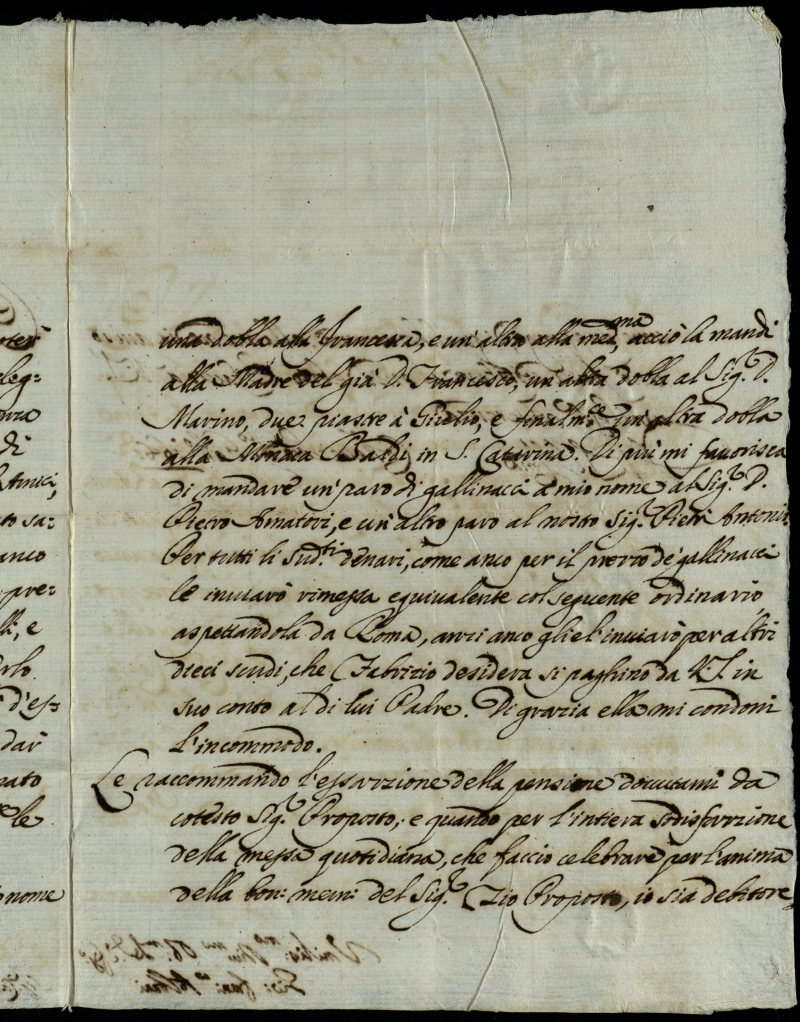 una dobla alla Francesca, e un'altra alla med.ma, acciò la mandi
alla Madre del già D. Francesco, un'altra dobla al Sig.r D.
Marino, due piastre à Giulio, e finalm.te un'altra dobla
alla Monaca Baldi in S. Catarina. Di più mi favorisca
di mandare un paro di gallinacci à mio nome al Sig.r D.
Pietro Amatori, e un'altro paro al nostro Sig.r Pietr'Antonio.
Per tutti li sud.ti denari, come anco per il prezzo de' gallinacci
le inviarò rimessa equivalente col seguente ordinario,
aspettandola da Roma, anzi anco gliel'inviarò per altri
dieci scudi, che Fabrizio desidera si paghino da V.S. in
suo conto al di lui Padre. Di grazia ella mi condoni
l'incommodo.
Le raccommando l'essazzione della pensione dovutami da
cotesto Sig.r Proposto, e quando per l'intiera sodisfazzione
della messa quotidiana, che faccio celebrare per l'anima
della bon: mem: del Sig.r Zio Proposto, io sia debitore,
oter
leg=
nza
di
Amici,
to sa=
anco
pre=
lli, e
arlo
d'es=
dar
nato
le
nome